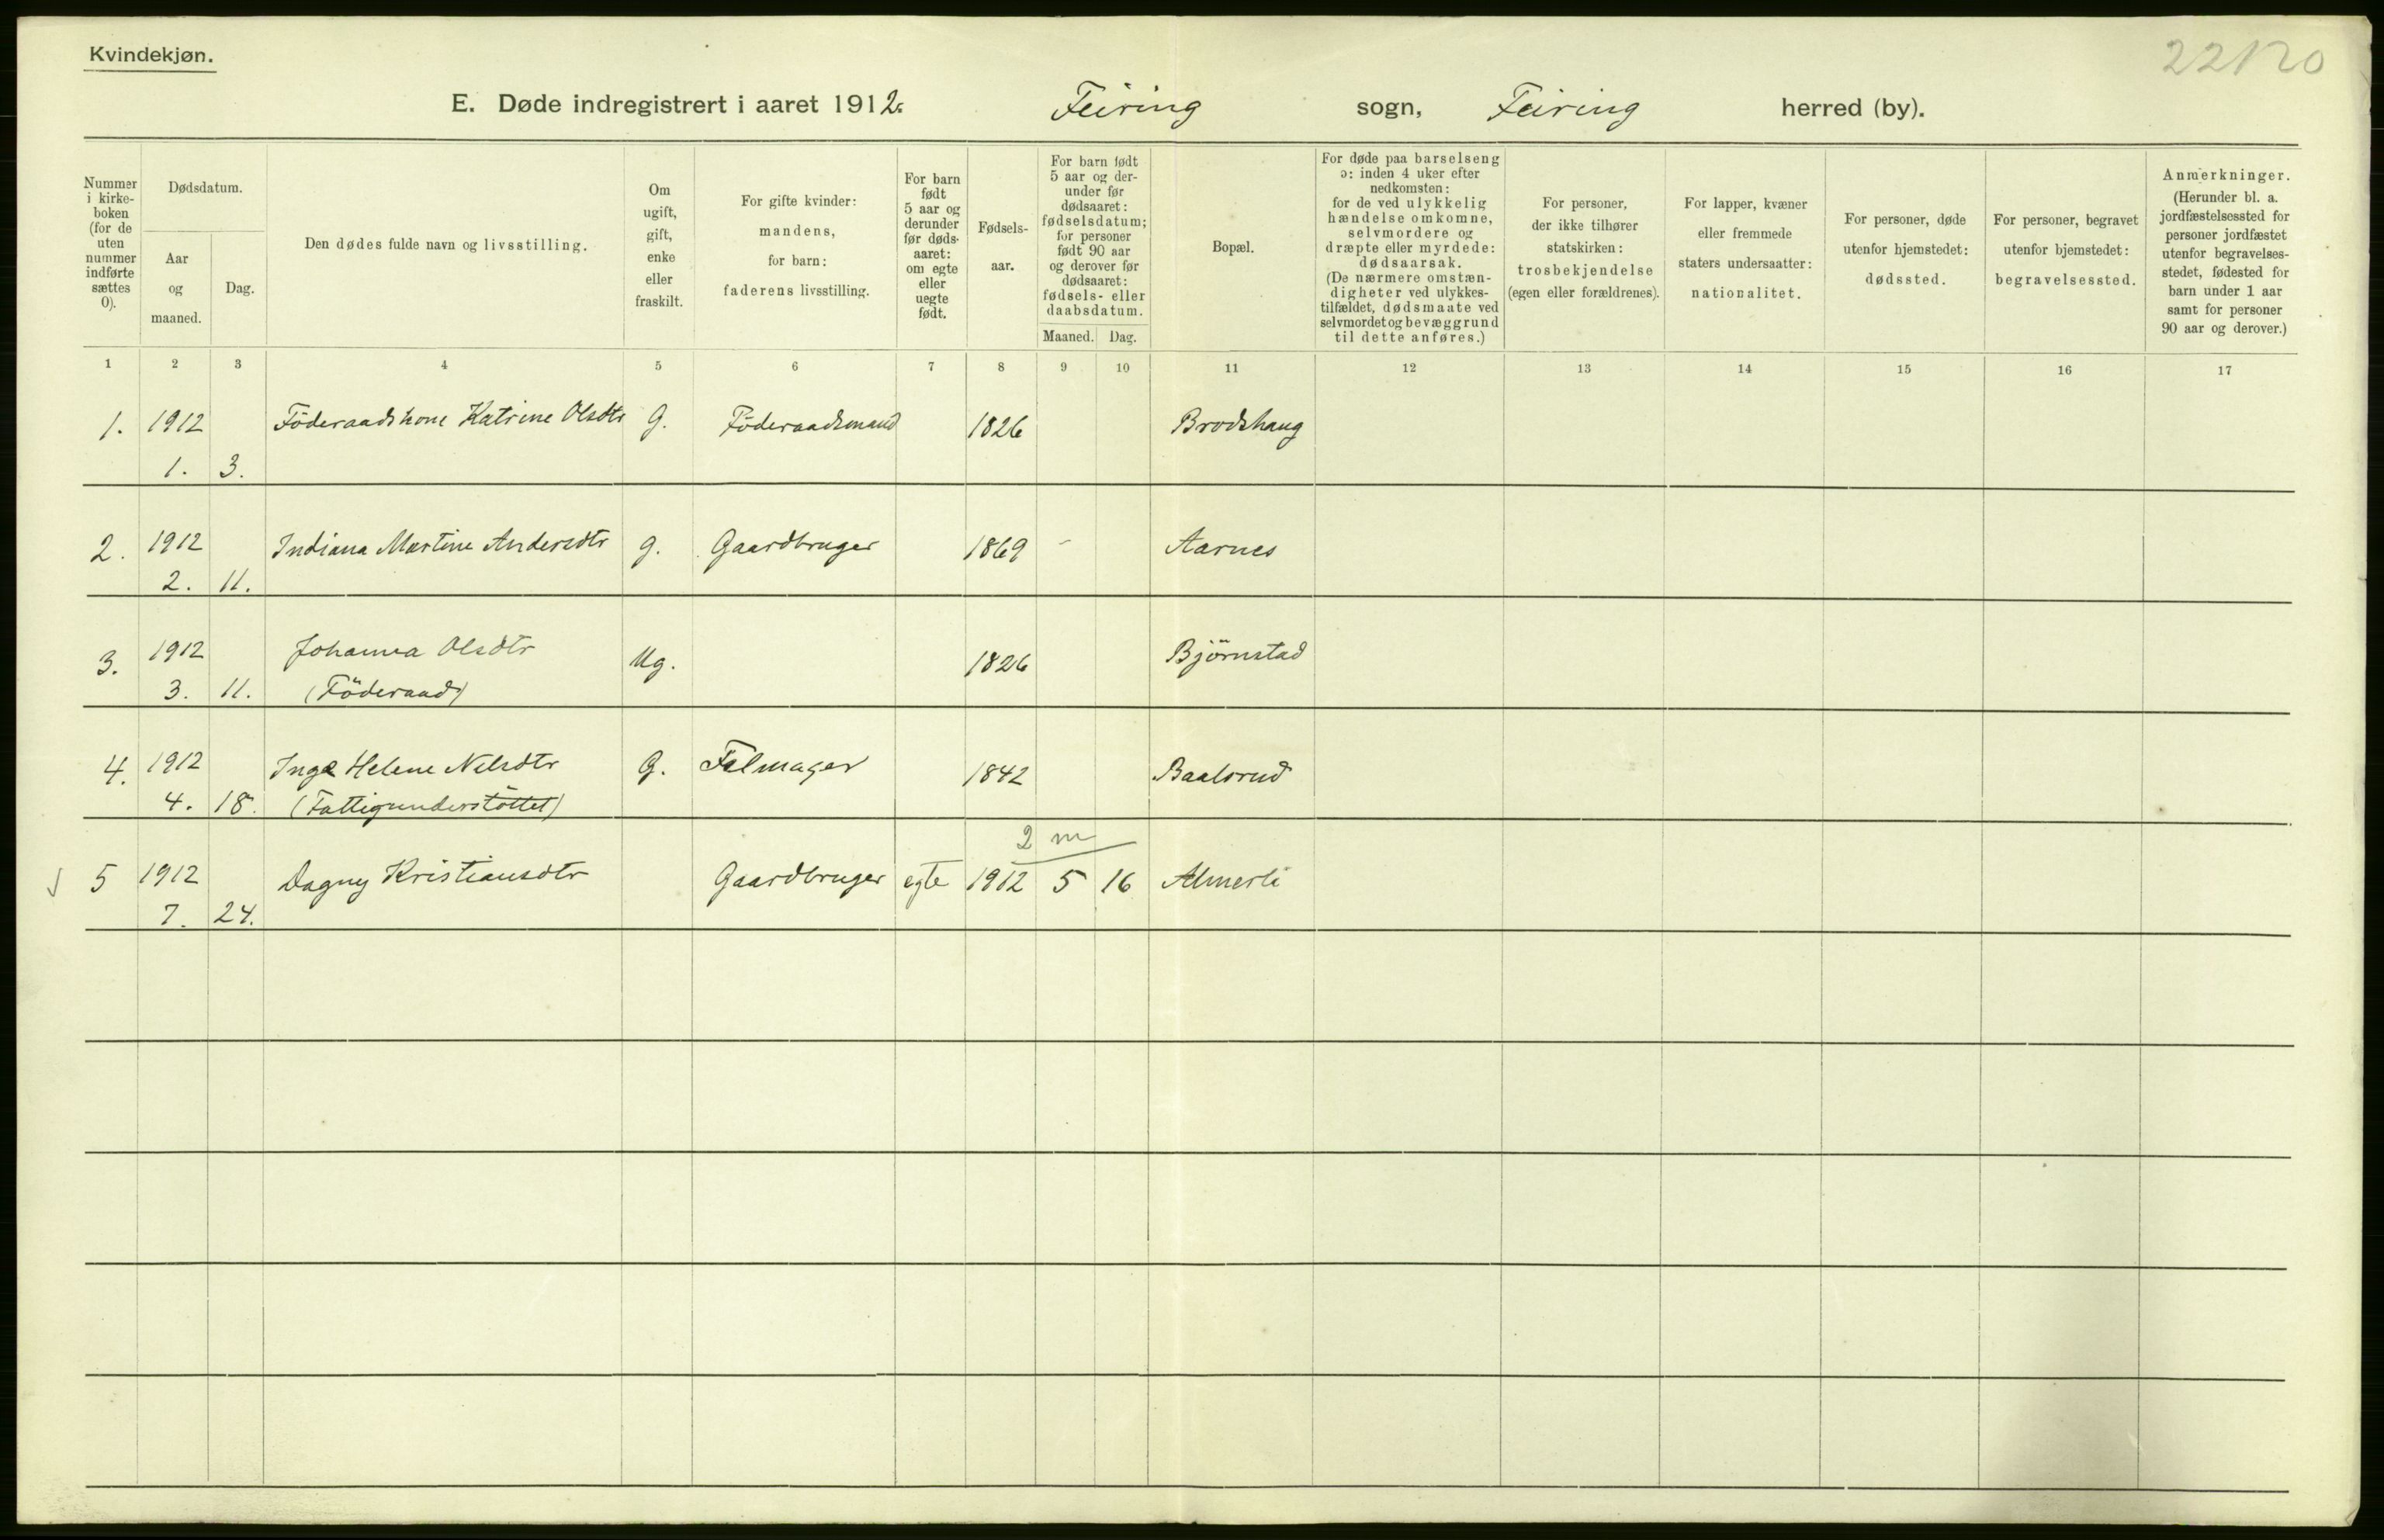 Kvindekjøn.
22120
E. Døde indregistrert i aaret 1912. Feiring sogn, Feiring herred (by).
Nummer i kirke-boken (for de uten nummer indførte sættes 0).
Dødsdatum.
Aar og maaned.
Dag.
Den dødes fulde navn og livsstilling.
Om ugift, gift, enke eller fraskilt.
For gifte kvinder: mandens, for barn: faderens livsstilling.
For barn født 5 aar og derunder før døds-aaret: om egte eller uegte født.
Fødsels-aar.
For barn født 5 aar og der-under før dødsaaret: fødselsdatum; for personer født 90 aar og derover før dødsaaret: fødsels- eller daabsdatum.
Maaned. Dag.
Bopæl.
For døde paa barselseng ɔ: inden 4 uker efter nedkomsten: for de ved ulykkelig hændelse omkomne, selvmordere og dræpte eller myrdede: dødsaarsak. (De nærmere omstæn-digheter ved ulykkes-tilfældet, dødsmaate ved selvmordet og bevæggrund til dette anføres.)
For personer, der ikke tilhører statskirken: trosbekjendelse (egen eller forældrenes).
For lapper, kvæner eller fremmede staters undersaatter: nationalitet.
For personer, døde utenfor hjemstedet: dødssted.
For personer, begravet utenfor bjemstedet: begravelsessted.
Anmerkninger. (Herunder bl. a. jordfæstelsessted for personer jordfæstet utenfor begravelses-stedet, fødested for barn under 1 aar samt for personer 90 aar og derover.)
1 2 3 4 5 6 7 8 9 10 11 12 13 14 15 16 17
1. 1912 Föderaadskone Katrine Olsdtr G. Föderaadsmand 1826 Brodshaug
1. 3.
2. 1912 Indiana Martine Andersdtr g. Gaardbruger 1869 - Aarnes
2. 11.
3. 1912 Johanna Olsdtr Ug. 1826 Björnstad
3. 11. (Föderaad)
4. 1912 Inga Helene Nelsdtr G. Felmager 1842 Baalsrud
4. 18. (Fattigunderstöttet)
2 m
5 1912 Dagny Kristiansdtr Gaardbruger egte 1912 5 16 Almerli
7. 24.